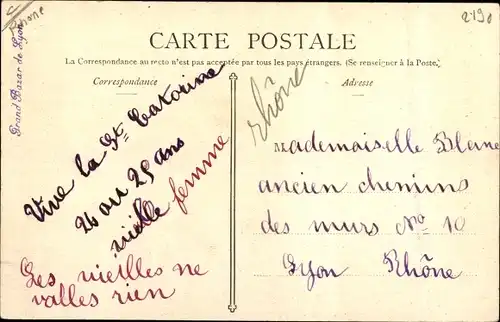 Rhone
2190
Grand Bazar de Lyon
CARTE POSTALE
La Correspondance au recto n'est pas acceptée par tous les pays étrangers. (Se renseigner à la Poste.)
Correspondance
Adresse
Rhône
Vive la Ste Catorine
24 au 25 ans
vieille femme
Les vieilles ne
valles rien
Mademoiselle Blanc
ancien chemins
des murs No 10
Lyon Rhône